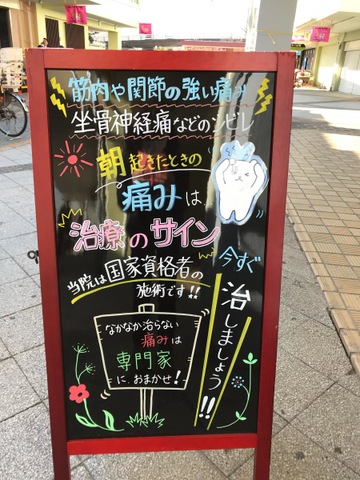 筋肉や関節の強い痛み
坐骨神経痛などのシビレ
朝起きたときの
痛みは
治療のサイン
当院は国家資格者の
施術です!!
今すぐ
治しましょう!!
なかなか治らない
痛みは
専門家
に、おまかせ!